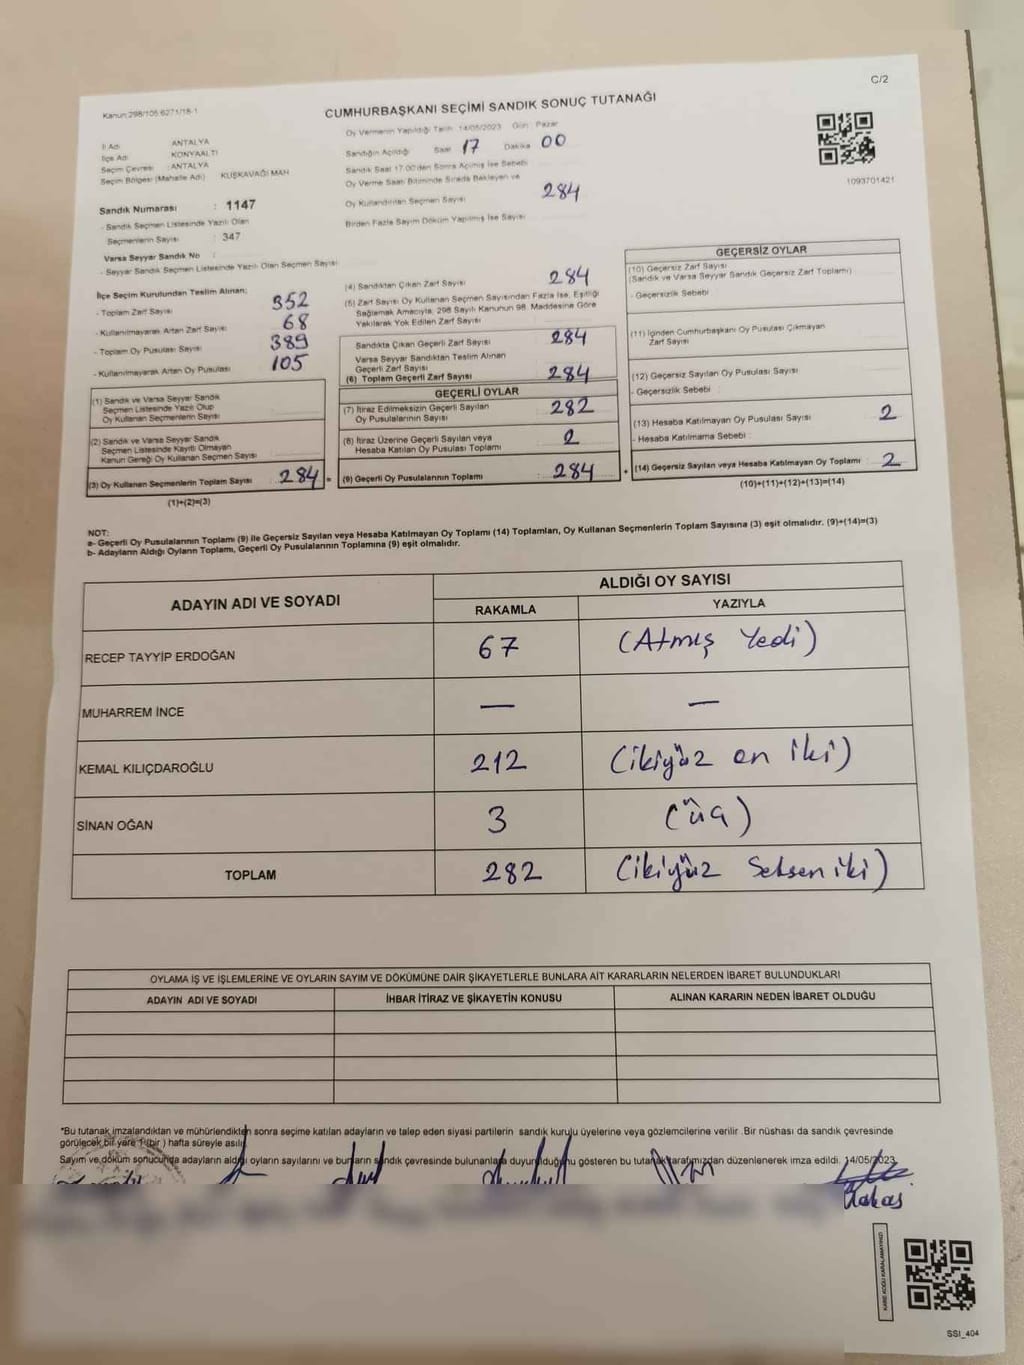 C/2
Kanun:298/105 6271/18-1
CUMHURBAŞKANI SEÇİMİ SANDIK SONUÇ TUTANAĞI
İl Adı : ANTALYA
İlçe Adı : KONYAALTI
Seçim Çevresi : ANTALYA
Seçim Bölgesi (Mahalle Adı) : KUŞKAVAĞI MAH
Sandık Numarası : 1147
- Sandık Seçmen Listesinde Yazılı Olan
Seçmenlerin Sayısı : 347
Varsa Seyyar Sandık No :
- Seyyar Sandık Seçmen Listesinde Yazılı Olan Seçmen Sayısı
Oy Vermenin Yapıldığı Tarih 14/05/2023 Gün: Pazar
Sandığın Açıldığı Saat 17 Dakika 00
Sandık Saat 17.00'den Sonra Açılmış İse Sebebi
Oy Verme Saati Bitiminde Sırada Bekleyen ve
Oy Kullandırılan Seçmen Sayısı 284
Birden Fazla Sayım Döküm Yapılmış İse Sayısı
1093701421
İlçe Seçim Kurulundan Teslim Alınan;
- Toplam Zarf Sayısı : 352
- Kullanılmayarak Artan Zarf Sayısı : 68
- Toplam Oy Pusulası Sayısı : 389
- Kullanılmayarak Artan Oy Pusulası : 105
(1) Sandık ve Varsa Seyyar Sandık
Seçmen Listesinde Yazılı Olup
Oy Kullanan Seçmenlerin Sayısı
(2) Sandık ve Varsa Seyyar Sandık
Seçmen Listesinde Kayıtlı Olmayan
Kanun Gereği Oy Kullanan Seçmen Sayısı
(3) Oy Kullanan Seçmenlerin Toplam Sayısı : 284 =
(1)+(2)=(3)
(4) Sandıktan Çıkan Zarf Sayısı : 284
(5) Zarf Sayısı Oy Kullanan Seçmen Sayısından Fazla İse, Eşitliği
Sağlamak Amacıyla, 298 Sayılı Kanunun 98. Maddesine Göre
Yakılarak Yok Edilen Zarf Sayısı
Sandıkta Çıkan Geçerli Zarf Sayısı : 284
Varsa Seyyar Sandıktan Teslim Alınan
Geçerli Zarf Sayısı
(6) Toplam Geçerli Zarf Sayısı : 284
GEÇERLİ OYLAR
(7) İtiraz Edilmeksizin Geçerli Sayılan
Oy Pusulalarının Sayısı : 282
(8) İtiraz Üzerine Geçerli Sayılan veya
Hesaba Katılan Oy Pusulası Toplamı : 2
(9) Geçerli Oy Pusulalarının Toplamı : 284 +
GEÇERSİZ OYLAR
(10) Geçersiz Zarf Sayısı
(Sandık ve Varsa Seyyar Sandık Geçersiz Zarf Toplamı)
- Geçersizlik Sebebi
(11) İçinden Cumhurbaşkanı Oy Pusulası Çıkmayan
Zarf Sayısı
(12) Geçersiz Sayılan Oy Pusulası Sayısı
- Geçersizlik Sebebi :
(13) Hesaba Katılmayan Oy Pusulası Sayısı : 2
- Hesaba Katılmama Sebebi :
(14) Geçersiz Sayılan veya Hesaba Katılmayan Oy Toplamı : 2
(10)+(11)+(12)+(13)=(14)
NOT:
a- Geçerli Oy Pusulalarının Toplamı (9) ile Geçersiz Sayılan veya Hesaba Katılmayan Oy Toplamı (14) Toplamları, Oy Kullanan Seçmenlerin Toplam Sayısına (3) eşit olmalıdır. (9)+(14)=(3)
b- Adayların Aldığı Oyların Toplamı, Geçerli Oy Pusulalarının Toplamına (9) eşit olmalıdır.
ADAYIN ADI VE SOYADI ALDIĞI OY SAYISI
RAKAMLA YAZIYLA
RECEP TAYYİP ERDOĞAN 67 (Atmış Yedi)
MUHARREM İNCE — —
KEMAL KILIÇDAROĞLU 212 (ikiyüz on iki)
SİNAN OĞAN 3 (üç)
TOPLAM 282 (ikiyüz Seksen iki)
OYLAMA İŞ VE İŞLEMLERİNE VE OYLARIN SAYIM VE DÖKÜMÜNE DAİR ŞİKAYETLERLE BUNLARA AİT KARARLARIN NELERDEN İBARET BULUNDUKLARI
ADAYIN ADI VE SOYADI İHBAR İTİRAZ VE ŞİKAYETİN KONUSU ALINAN KARARIN NEDEN İBARET OLDUĞU
*Bu tutanak imzalandıktan ve mühürlendikten sonra seçime katılan adayların ve talep eden siyasi partilerin sandık kurulu üyelerine veya gözlemcilerine verilir .Bir nüshası da sandık çevresinde
görülecek bir yere 1 (bir ) hafta süreyle asılır.
Sayım ve döküm sonucunda adayların aldığı oyların sayılarını ve bunların sandık çevresinde bulunanlara duyurulduğunu gösteren bu tutanak tarafımızdan düzenlenerek imza edildi. 14/05/2023
KARE KODU KARALAMAYINIZ!
SSI_404